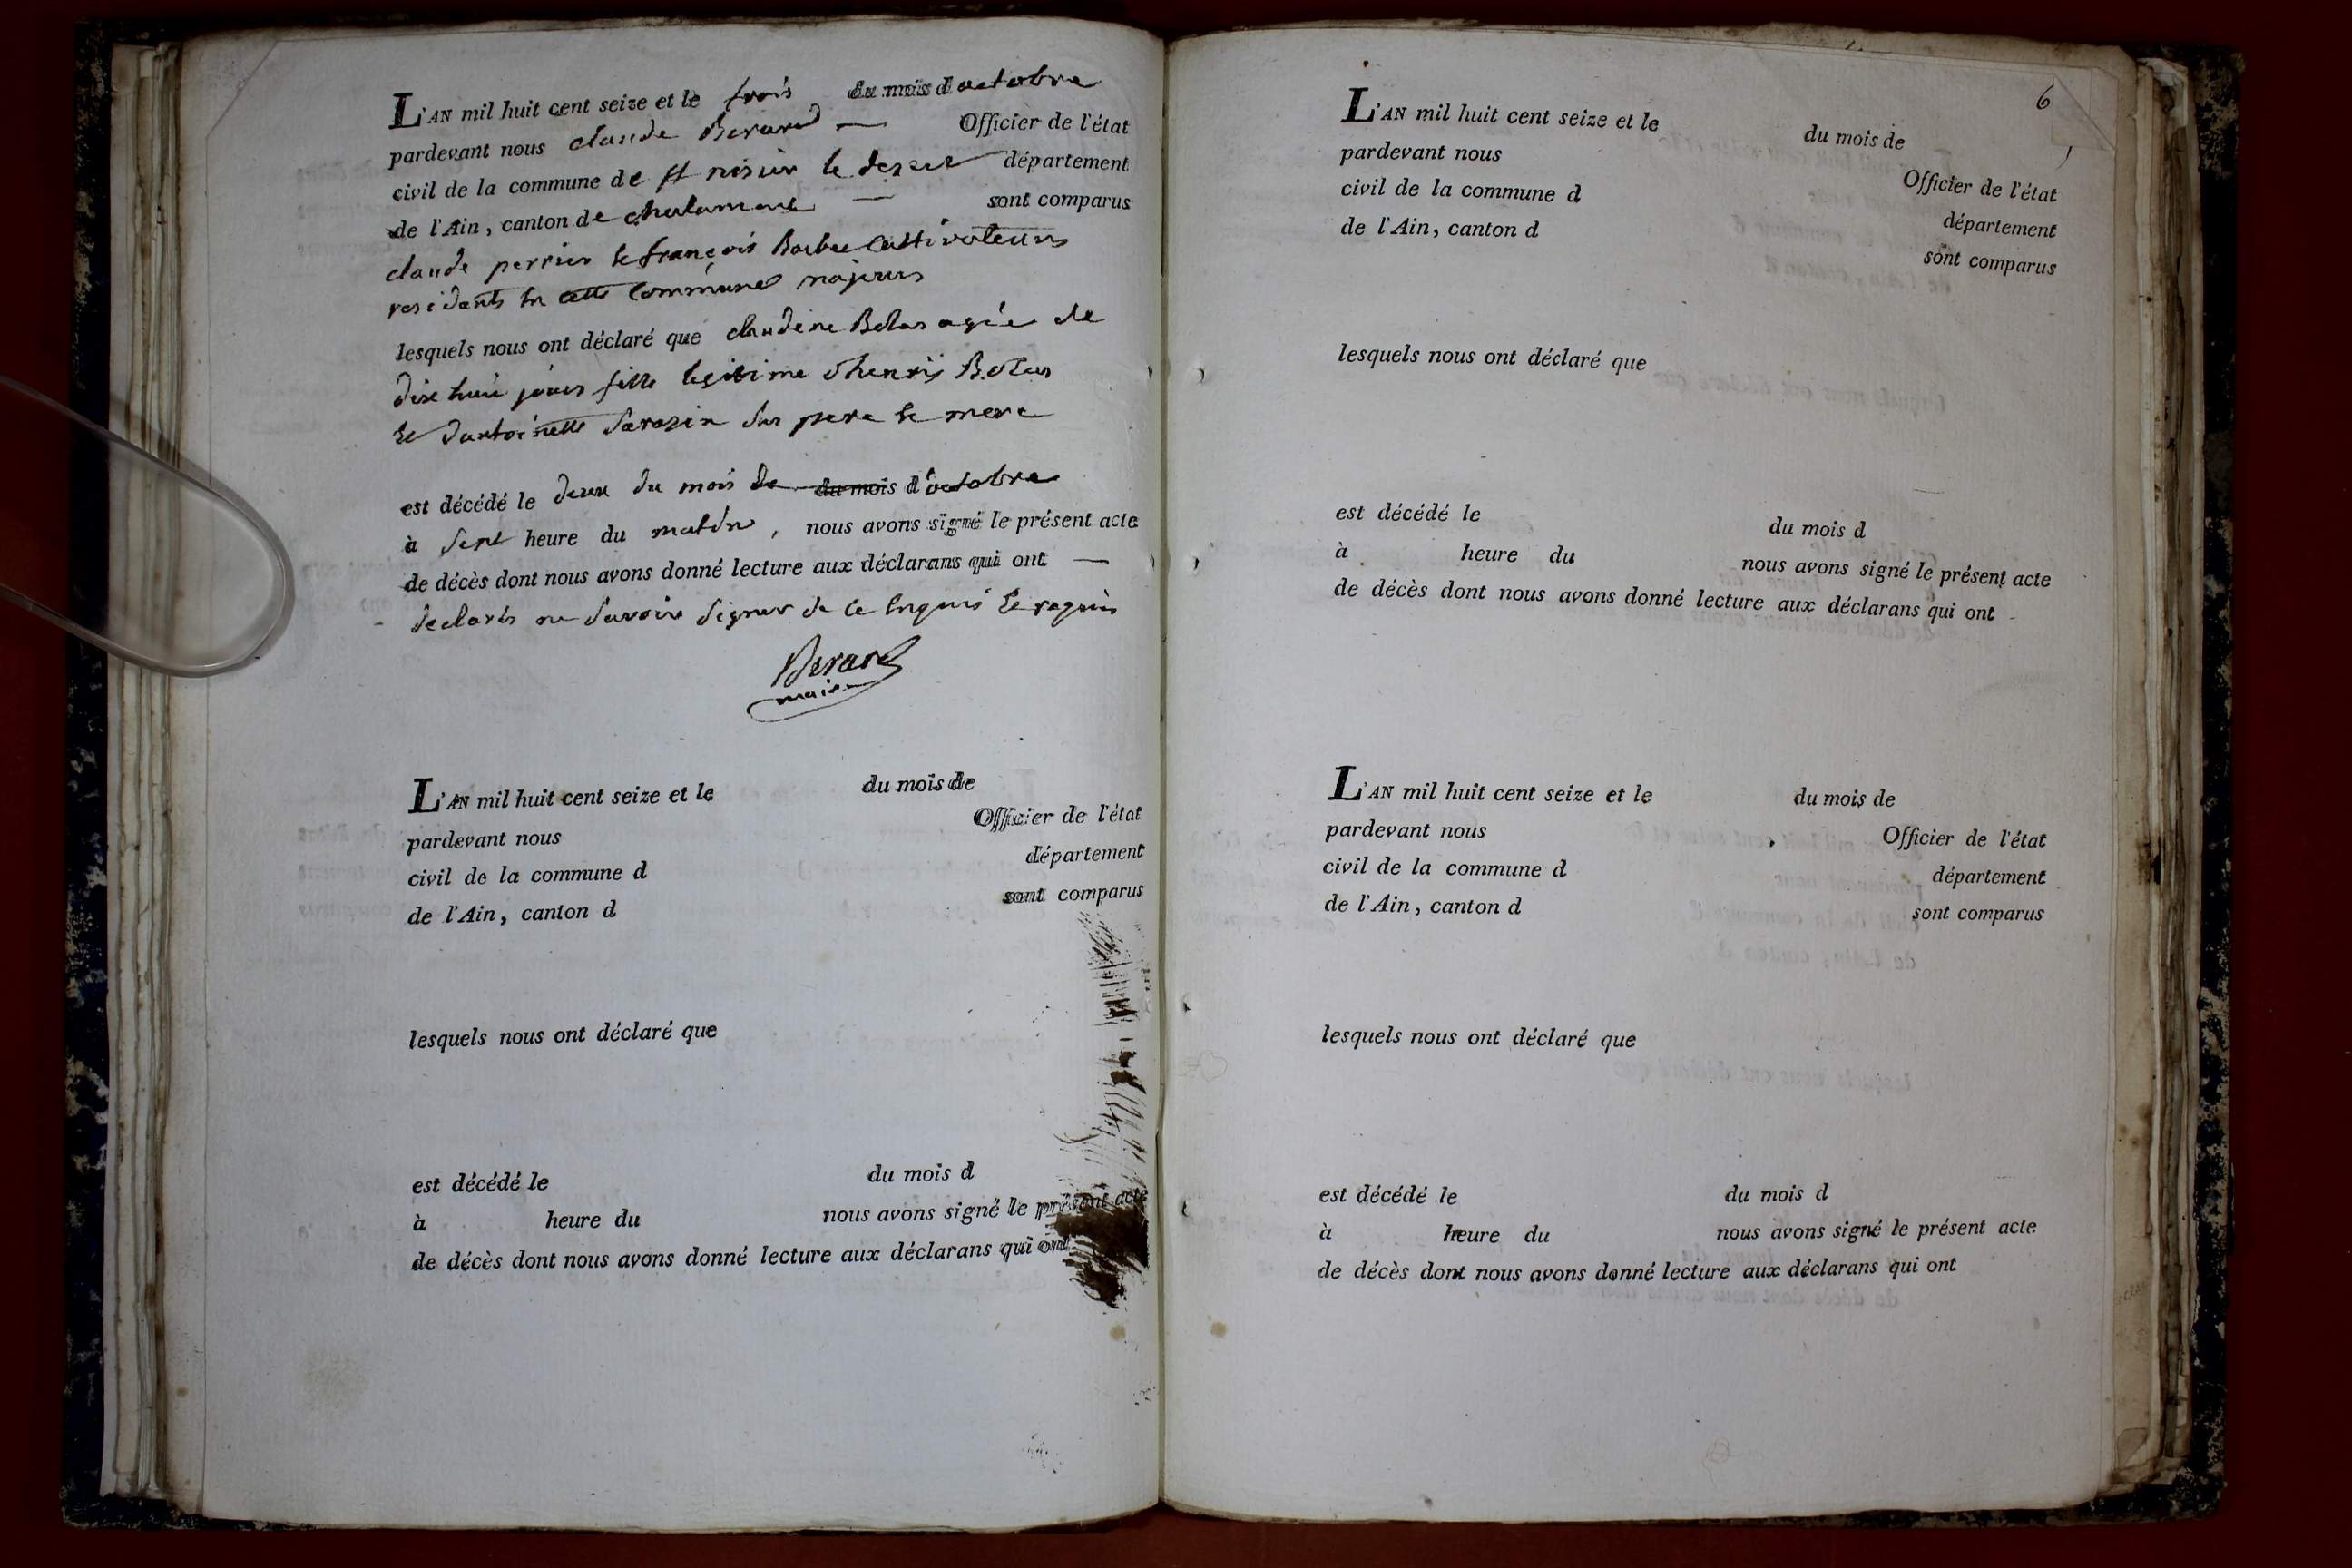 L'AN mil huit cent seize et le trois du mois d'octobre
pardevant nous claude Berard — Officier de l'état
civil de la commune de st nisier le desert département
de l'Ain, canton de chalamont — sont comparus
claude perrier et françois Barbet cultivateurs
residants en cette commune majeurs
lesquels nous ont déclaré que claudine Bolas agée de
dix huit jours fille legitime d'henrÿ Bolas
et d'antoinette Sarasin ses pere et mere
est décédé le deux du mois de du mois d'octobre
à sept heure du matin, nous avons signé le présent acte
de décès dont nous avons donné lecture aux déclarans qui ont —
declarés ne savoir signer de ce enquis et requis
Berard
maire
L'AN mil huit cent seize et le du mois de
pardevant nous Officier de l'état
civil de la commune d département
de l'Ain, canton d sont comparus
lesquels nous ont déclaré que
est décédé le du mois d
à heure du nous avons signé le présent acte
de décès dont nous avons donné lecture aux déclarans qui ont
6
L'AN mil huit cent seize et le du mois de
pardevant nous Officier de l'état
civil de la commune d département
de l'Ain, canton d sont comparus
lesquels nous ont déclaré que
est décédé le du mois d
à heure du nous avons signé le présent acte
de décès dont nous avons donné lecture aux déclarans qui ont
L'AN mil huit cent seize et le du mois de
pardevant nous Officier de l'état
civil de la commune d département
de l'Ain, canton d sont comparus
lesquels nous ont déclaré que
est décédé le du mois d
à heure du nous avons signé le présent acte
de décès dont nous avons donné lecture aux déclarans qui ont